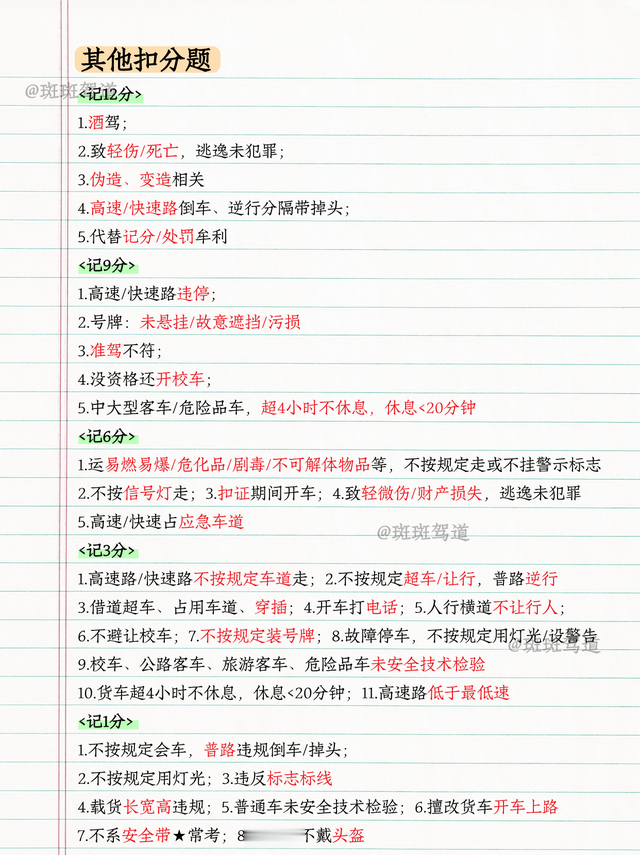 其他扣分题
@斑斑驾道
<记12分>
1.酒驾；
2.致轻伤/死亡，逃逸未犯罪；
3.伪造、变造相关
4.高速/快速路倒车、逆行分隔带掉头；
5.代替记分/处罚牟利
<记9分>
1.高速/快速路违停；
2.号牌：未悬挂/故意遮挡/污损
3.准驾不符；
4.没资格还开校车；
5.中大型客车/危险品车，超4小时不休息，休息<20分钟
<记6分>
1.运易燃易爆/危化品/剧毒/不可解体物品等，不按规定走或不挂警示标志
2.不按信号灯走；3.扣证期间开车；4.致轻微伤/财产损失，逃逸未犯罪
5.高速/快速占应急车道
@斑斑驾道
<记3分>
1.高速路/快速路不按规定车道走；2.不按规定超车/让行，普路逆行
3.借道超车、占用车道、穿插；4.开车打电话；5.人行横道不让行人；
6.不避让校车；7.不按规定装号牌；8.故障停车，不按规定用灯光/设警告
@斑斑驾道
9.校车、公路客车、旅游客车、危险品车未安全技术检验
10.货车超4小时不休息，休息<20分钟；11.高速路低于最低速
<记1分>
1.不按规定会车，普路违规倒车/掉头；
2.不按规定用灯光；3.违反标志标线
4.载货长宽高违规；5.普通车未安全技术检验；6.擅改货车开车上路
7.不系安全带★常考；8 不戴头盔